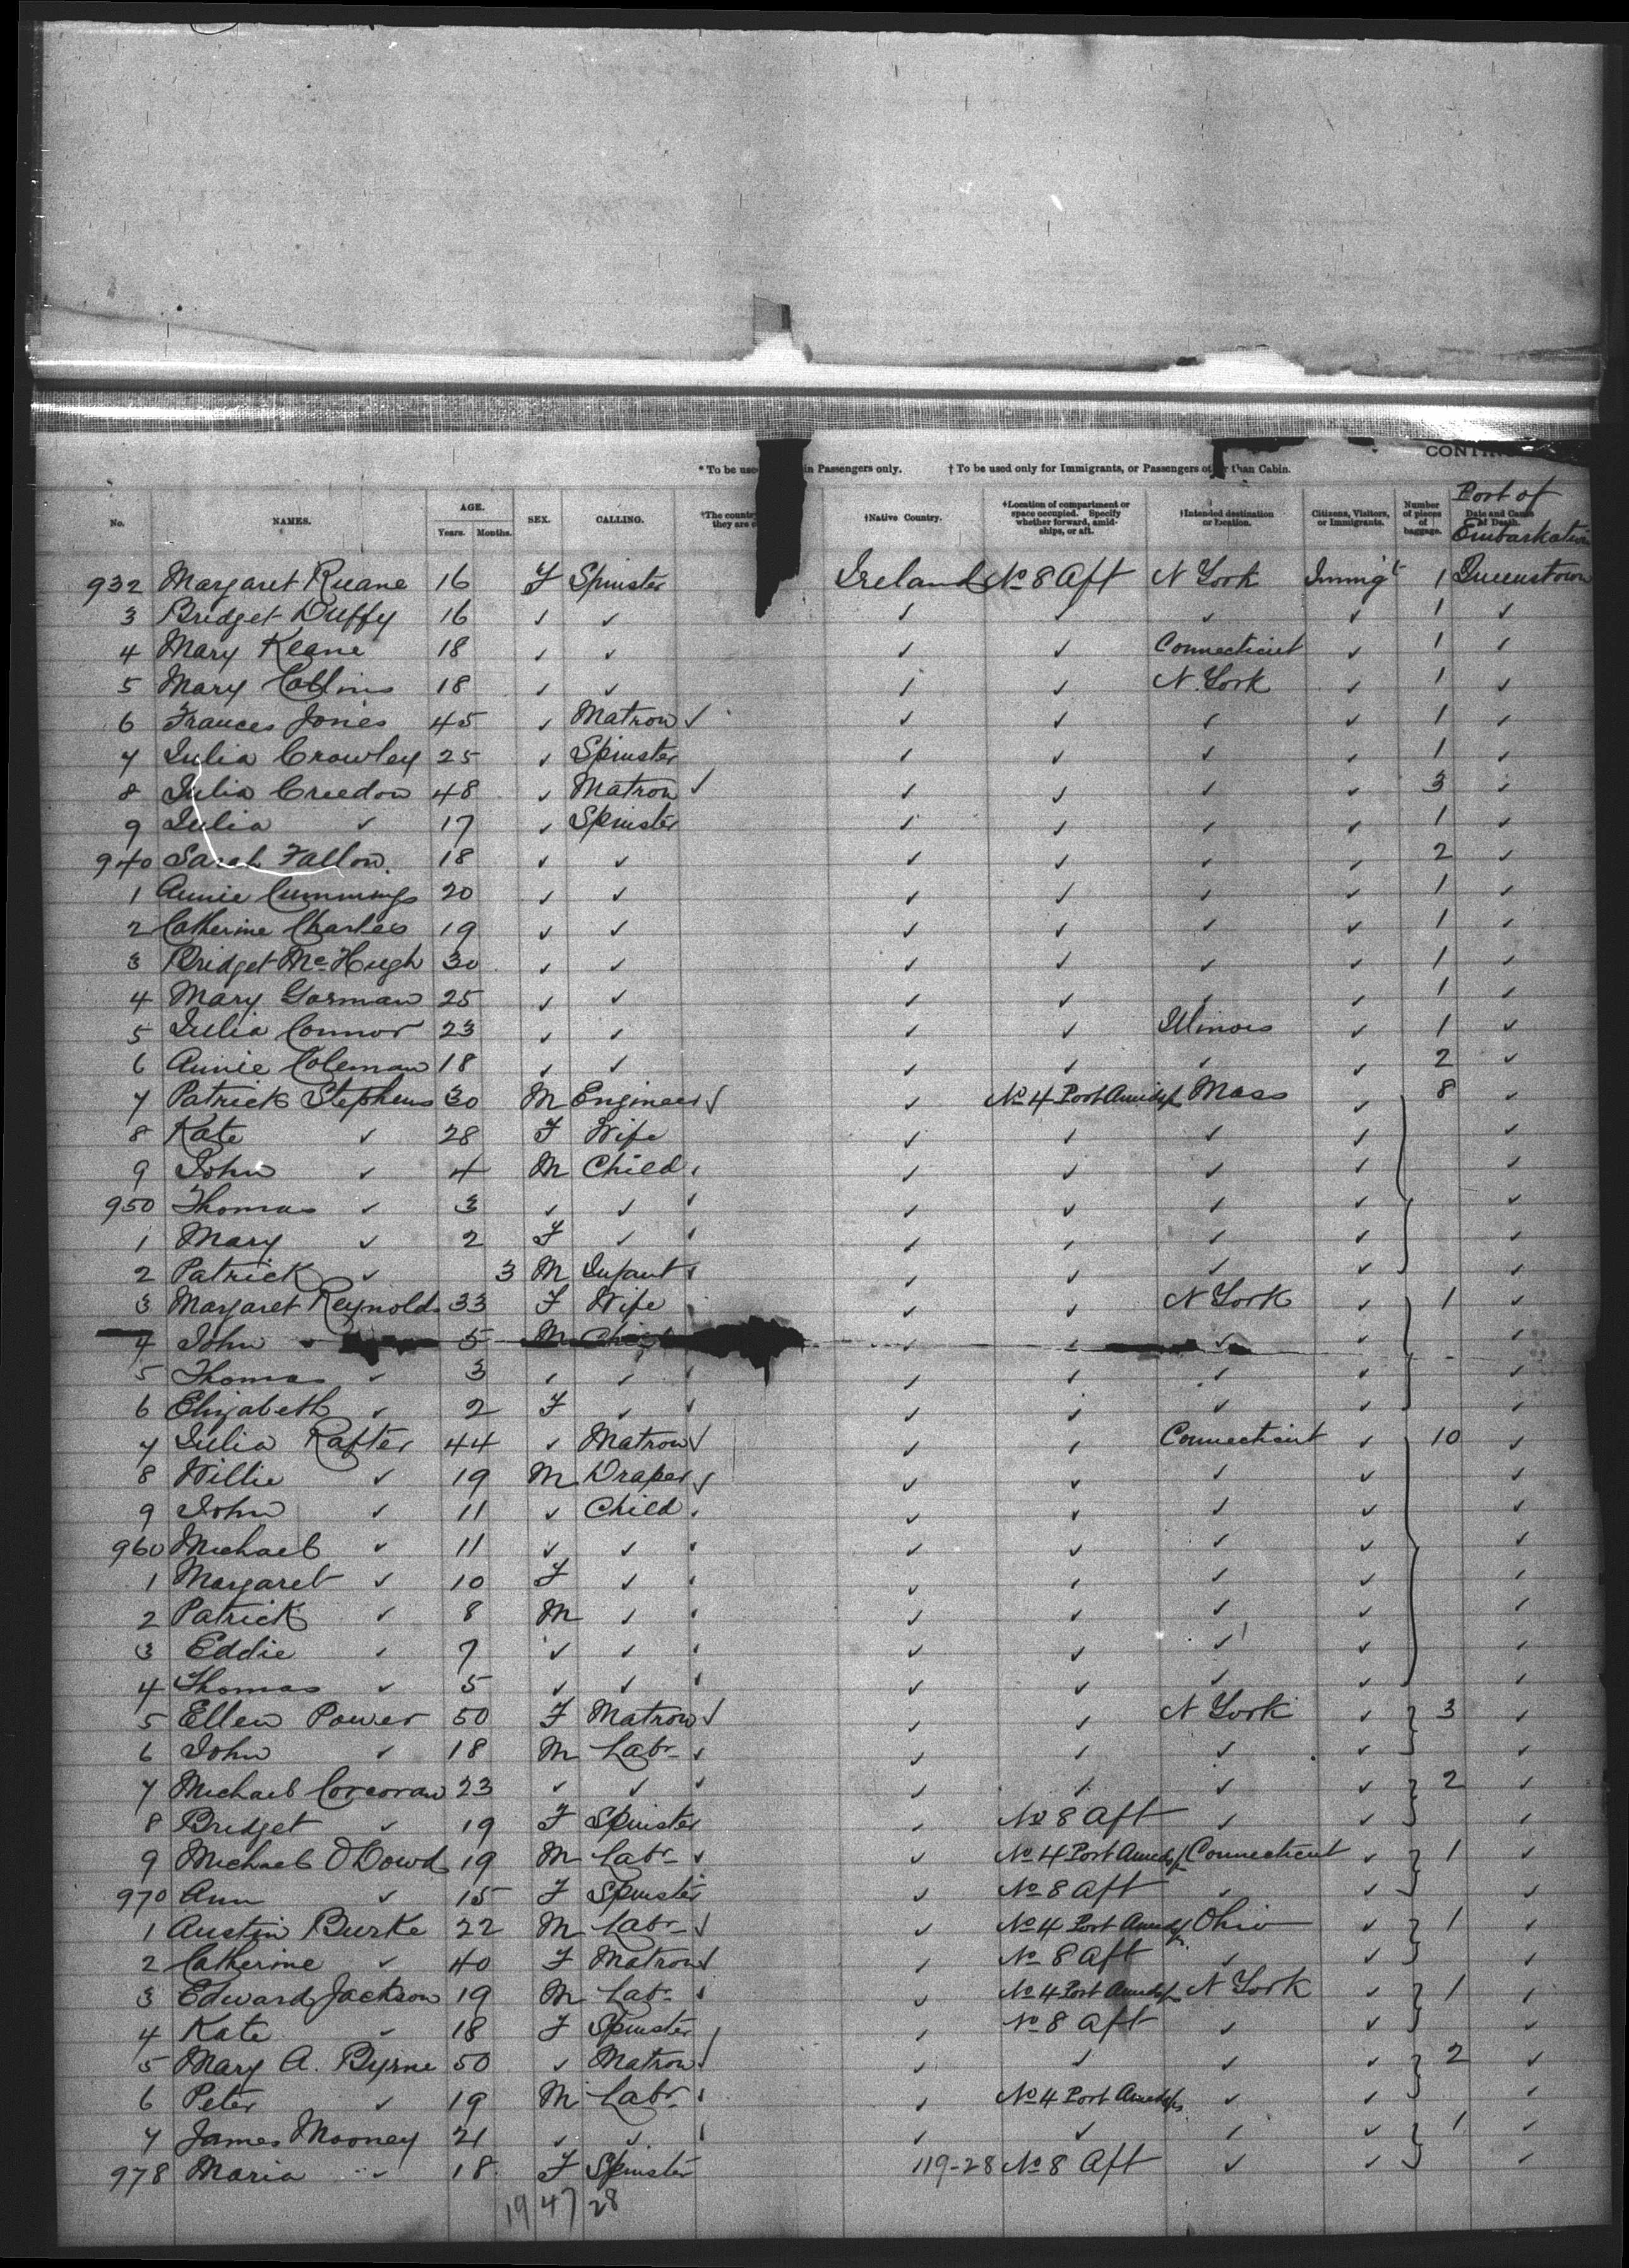 CONTIN
* To be use in Passengers only. † To be used only for Immigrants, or Passengers other than Cabin.
No. NAMES. AGE. Years. Months. SEX. CALLING. *The country they are †Native Country. †Location of compartment or space occupied. Specify whether forward, amidships, or aft. †Intended destination or location. Citizens, Visitors, or Immigrants. Number of pieces of baggage. Date and Cause of Death. Port of Embarkation
932 Margaret Ruane 16 F Spinster Ireland No 8 Aft N York Immigt 1 Queenstown
3 Bridget Duffy 16 ✓ ✓ ✓ ✓ ✓ ✓ 1 ✓
4 Mary Keane 18 ✓ ✓ ✓ ✓ Connecticut ✓ 1 ✓
5 Mary Collins 18 ✓ ✓ ✓ ✓ N. York ✓ 1 ✓
6 Frances Jones 45 ✓ Matron ✓ ✓ ✓ ✓ ✓ 1 ✓
7 Julia Crowley 25 ✓ Spinster ✓ ✓ ✓ ✓ 1 ✓
8 Julia Creedon 48 ✓ Matron ✓ ✓ ✓ ✓ ✓ 3 ✓
9 Julia ✓ 17 ✓ Spinster ✓ ✓ ✓ ✓ 1 ✓
940 Sarah Fallon. 18 ✓ ✓ ✓ ✓ ✓ ✓ 2 ✓
1 Annie Cummings 20 ✓ ✓ ✓ ✓ ✓ ✓ 1 ✓
2 Catherine Charles 19 ✓ ✓ ✓ ✓ ✓ ✓ 1 ✓
3 Bridget McHugh 30 ✓ ✓ ✓ ✓ ✓ ✓ 1 ✓
4 Mary Gorman 25 ✓ ✓ ✓ ✓ ✓ ✓ 1 ✓
5 Julia Connor 23 ✓ ✓ ✓ ✓ Illinois ✓ 1 ✓
6 Annie Coleman 18 ✓ ✓ ✓ ✓ ✓ ✓ 2 ✓
7 Patrick Stephens 30 M Engineer ✓ ✓ No 4 Port Amidsps Mass ✓ 8 ✓
8 Kate ✓ 28 F Wife ✓ ✓ ✓ ✓ ✓
9 John ✓ 4 M Child ✓ ✓ ✓ ✓ ✓ ✓
950 Thomas ✓ 3 ✓ ✓ ✓ ✓ ✓ ✓ ✓ ✓
1 Mary ✓ 2 F ✓ ✓ ✓ ✓ ✓ ✓ ✓
2 Patrick ✓ 3 M Infant ✓ ✓ ✓ ✓ ✓ ✓
3 Margaret Reynolds 33 F Wife ✓ ✓ N York ✓ 1 ✓
4 John ✓ 5 M Child ✓ ✓ ✓ ✓ ✓
5 Thomas ✓ 3 ✓ ✓ ✓ ✓ ✓ ✓ ✓ ✓
6 Elizabeth ✓ 2 F ✓ ✓ ✓ ✓ ✓ ✓ ✓
7 Julia Rafter 44 ✓ Matron ✓ ✓ ✓ Connecticut ✓ 10 ✓
8 Willie ✓ 19 M Draper ✓ ✓ ✓ ✓ ✓ ✓
9 John ✓ 11 ✓ Child ✓ ✓ ✓ ✓ ✓ ✓
960 Michael ✓ 11 ✓ ✓ ✓ ✓ ✓ ✓ ✓ ✓
1 Margaret ✓ 10 F ✓ ✓ ✓ ✓ ✓ ✓ ✓
2 Patrick ✓ 8 M ✓ ✓ ✓ ✓ ✓ ✓ ✓
3 Eddie ✓ 7 ✓ ✓ ✓ ✓ ✓ ✓ ✓ ✓
4 Thomas ✓ 5 ✓ ✓ ✓ ✓ ✓ ✓ ✓ ✓
5 Ellen Power 50 F Matron ✓ ✓ ✓ N York ✓ 3 ✓
6 John ✓ 18 M Labr ✓ ✓ ✓ ✓ ✓ ✓
7 Michael Corcoran 23 ✓ ✓ ✓ ✓ ✓ ✓ ✓ 2 ✓
8 Bridget ✓ 19 F Spinster ✓ No 8 Aft ✓ ✓ ✓
9 Michael O'Dowd 19 M Labr ✓ ✓ No 4 Port Amidsps Connecticut ✓ 1 ✓
970 Ann ✓ 15 F Spinster ✓ No 8 Aft ✓ ✓ ✓
1 Austin Burke 22 M Labr ✓ ✓ No 4 Port Amidsps Ohio ✓ 1 ✓
2 Catherine ✓ 40 F Matron ✓ ✓ No 8 Aft ✓ ✓ ✓
3 Edward Jackson 19 M Labr ✓ ✓ No 4 Port Amidsps N York ✓ 1 ✓
4 Kate ✓ 18 F Spinster ✓ No 8 Aft ✓ ✓ ✓
5 Mary A. Byrne 50 ✓ Matron ✓ ✓ ✓ ✓ ✓ 2 ✓
6 Peter ✓ 19 M Labr ✓ ✓ No 4 Port Amidsps ✓ ✓ ✓
7 James Mooney 21 ✓ ✓ ✓ ✓ ✓ ✓ ✓ 1 ✓
978 Maria ✓ 18 F Spinster 119-28 No 8 Aft ✓ ✓ ✓
19 47 28